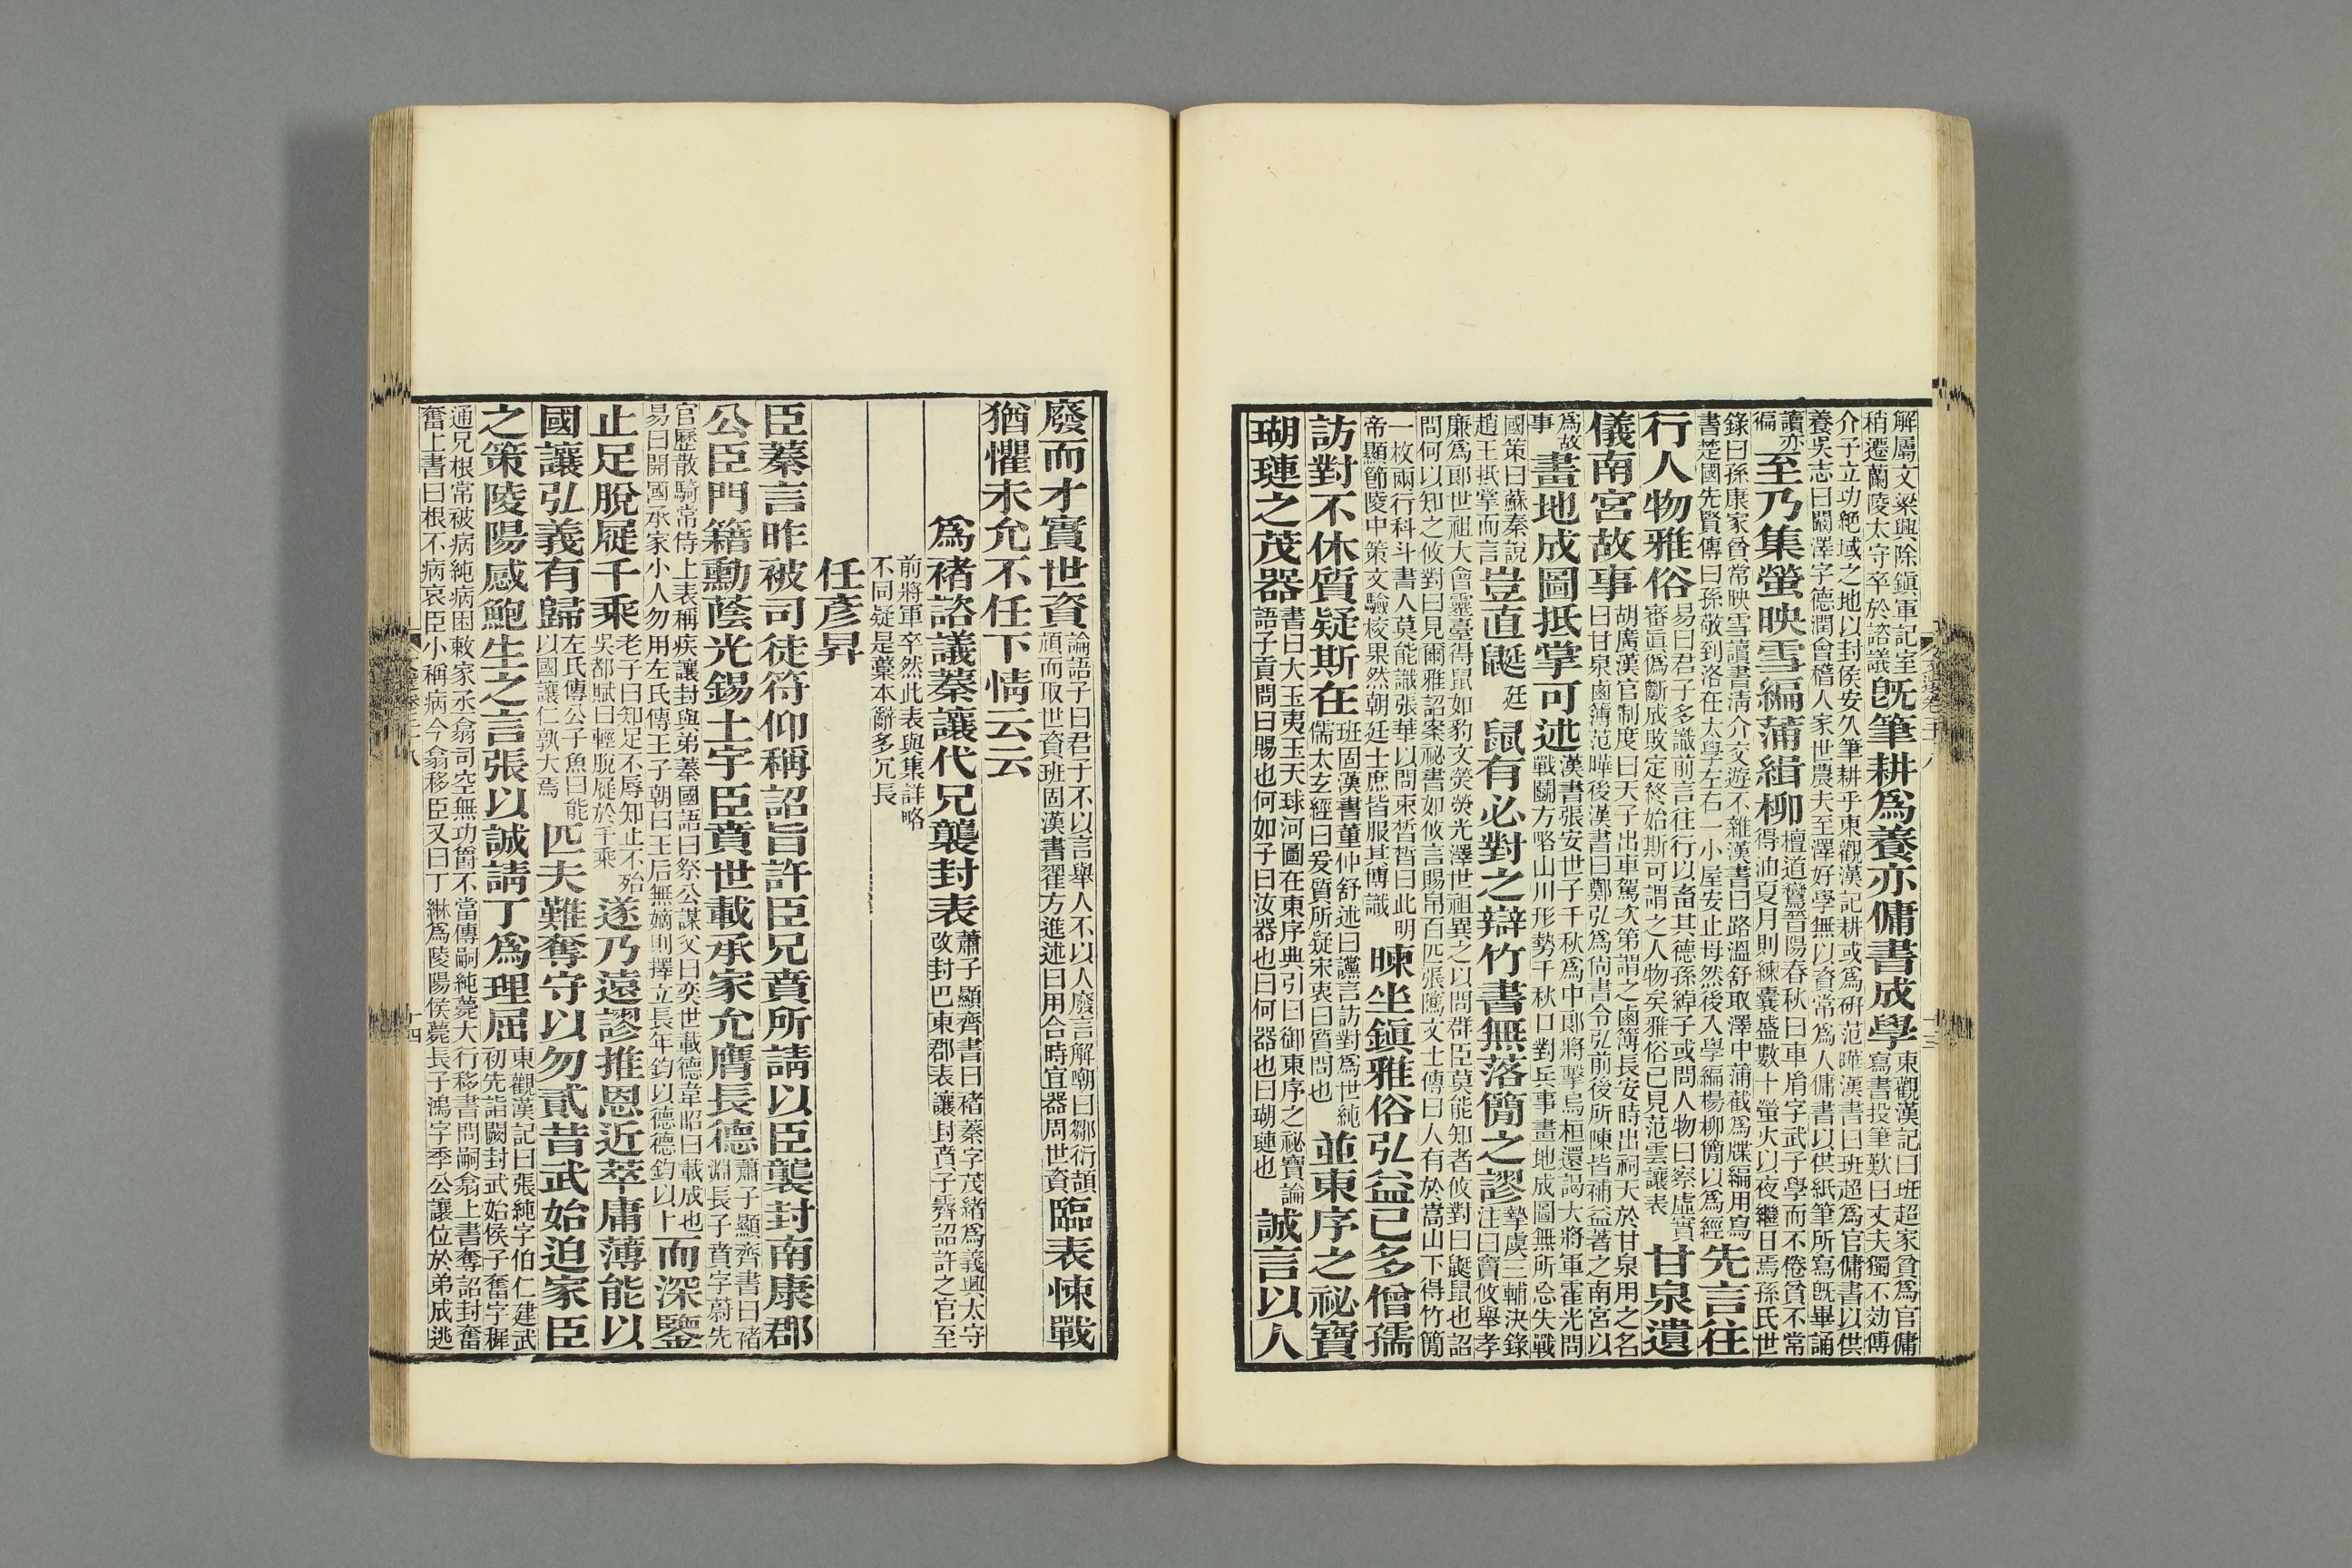 解屬文梁興除鎭軍記室
稍遷蘭陵太守卒於諮議
旣筆耕爲養亦傭書成學
東觀漢記曰班超家貧爲官傭
寫書投筆歎曰丈夫獨不効傅
介子立功絕域之地以封侯安久筆耕乎東觀漢記耕或爲硏范曄漢書曰班超爲官傭書以供
養吳志曰闞澤字德潤會稽人家世農夫至澤好學無以資常爲人傭書以供紙筆所寫旣畢誦
讀亦
徧
至乃集螢映雪編蒲緝柳
檀道鸞晉陽春秋曰車胤字武子學而不倦貧不常
得油夏月則練囊盛數十螢火以夜繼日焉孫氏世
錄曰孫康家貧常映雪讀書淸介交遊不雜漢書曰路溫舒取澤中蒲截爲牒編用寫
書楚國先賢傳曰孫敬到洛在太學左右一小屋安止母然後入學編楊柳簡以爲經
先言往
行人物雅俗
易曰君子多識前言往行以畜其德孫綽子或問人物曰察虛實
審眞僞斷成敗定終始斯可謂之人物矣雅俗已見范雲讓表
甘泉遺
儀南宮故事
胡廣漢官制度曰天子出車駕次第謂之鹵簿長安時出祠天於甘泉用之名
曰甘泉鹵簿范曄後漢書曰鄭弘爲尙書令弘前後所陳皆補益著之南宮以
爲故
事
畫地成圖抵掌可述
漢書張安世子千秋爲中郎將擊烏桓還謁大將軍霍光問
戰鬬方略山川形勢千秋口對兵事畫地成圖無所忘失戰
國策曰蘇秦說
趙王抵掌而言
豈直鼮
廷
鼠有必對之辯竹書無落簡之謬
摯虞三輔決錄
注曰竇攸舉孝
廉爲郎世祖大會靈臺得鼠如豹文熒熒光澤世祖異之以問群臣莫能知者攸對曰鼮鼠也詔
問何以知之攸對曰見爾雅詔案祕書如攸言賜帛百匹張騭文士傳曰人有於嵩山下得竹簡
一枚兩行科斗書人莫能識張華以問束晳晳曰此明
帝顯節陵中策文驗校果然朝廷士庶皆服其博識
暕坐鎭雅俗弘益已多僧孺
訪對不休質疑斯在
班固漢書董仲舒述曰讜言訪對爲世純
儒太玄經曰爰質所疑宋衷曰質問也
並東序之祕寶
瑚璉之茂器
書曰大玉夷玉天球河圖在東序典引曰御東序之祕寶論
語子貢問曰賜也何如子曰汝器也曰何器也曰瑚璉也
誠言以人
廢而才實世資
論語子曰君子不以言舉人不以人廢言解嘲曰鄒衍頡
頏而取世資班固漢書翟方進述曰用合時宜器周世資
臨表悚戰
猶懼未允不任下情云云
爲褚諮議蓁讓代兄襲封表
蕭子顯齊書曰褚蓁字茂緒爲義興太守
改封巴東郡表讓封賁子霽詔許之官至
前將軍卒然此表與集詳略
不同疑是藳本辭多冗長
任彥昇
臣蓁言昨被司徒符仰稱詔旨許臣兄賁所請以臣襲封南康郡
公臣門籍勳蔭光錫土宇臣賁世載承家允膺長德
蕭子顯齊書曰褚
淵長子賁字蔚先
官歷散騎常侍上表稱疾讓封與弟蓁國語曰祭公謀父曰奕世載德韋昭曰載成也
易曰開國承家小人勿用左氏傳王子朝曰王后無嫡則擇立長年鈞以德德鈞以卜
而深鑒
止足脫屣千乘
老子曰知足不辱知止不殆
吳都賦曰輕脫屣於千乘
遂乃遠謬推恩近萃庸薄能以
國讓弘義有歸
左氏傳公子魚曰能
以國讓仁孰大焉
匹夫難奪守以勿貳昔武始迫家臣
之策陵陽感鮑生之言張以誠請丁爲理屈
東觀漢記曰張純字伯仁建武
初先詣闕封武始侯子奮字稺
通兄根常被病純病困敕家丞翕司空無功爵不當傳嗣純薨大行移書問嗣翕上書奪詔封奮
奮上書曰根不病哀臣小稱病今翕移臣又曰丁綝爲陵陽侯薨長子鴻字季公讓位於弟成逃